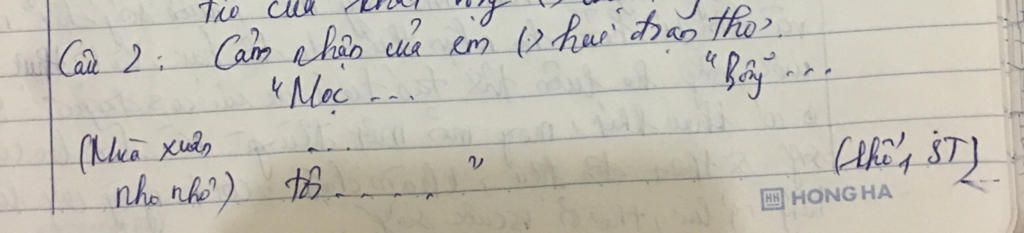 của
Câu 2: Cảm nhận của em (:) hai đoạn thơ.
"Mọc ... "Bỗng" ...
(Mùa xuân ...
nho nhỏ) tôi ......" (khổ 1, ST)
HH HONG HA